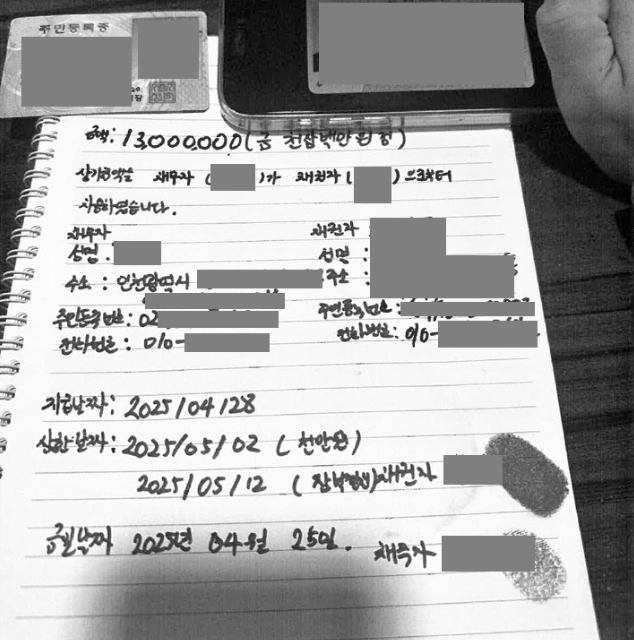 주민등록증
금액: 13,000,000 (금 천삼백만원정)
상기금액을 채무자 ( )가 채권자 ( ) 으로부터
차용하였습니다.
채무자
성명 :
주소 : 인천광역시
주민등록번호: 02
전화번호 : 010-
채권자
성명 :
주소 :
주민등록번호:
전화번호: 010-
지급날짜: 2025/04/28
상환날짜: 2025/05/02 ( 천만원)
2025/05/12 ( ) 채권자
금일날짜 2025년 04월 25일. 채무자